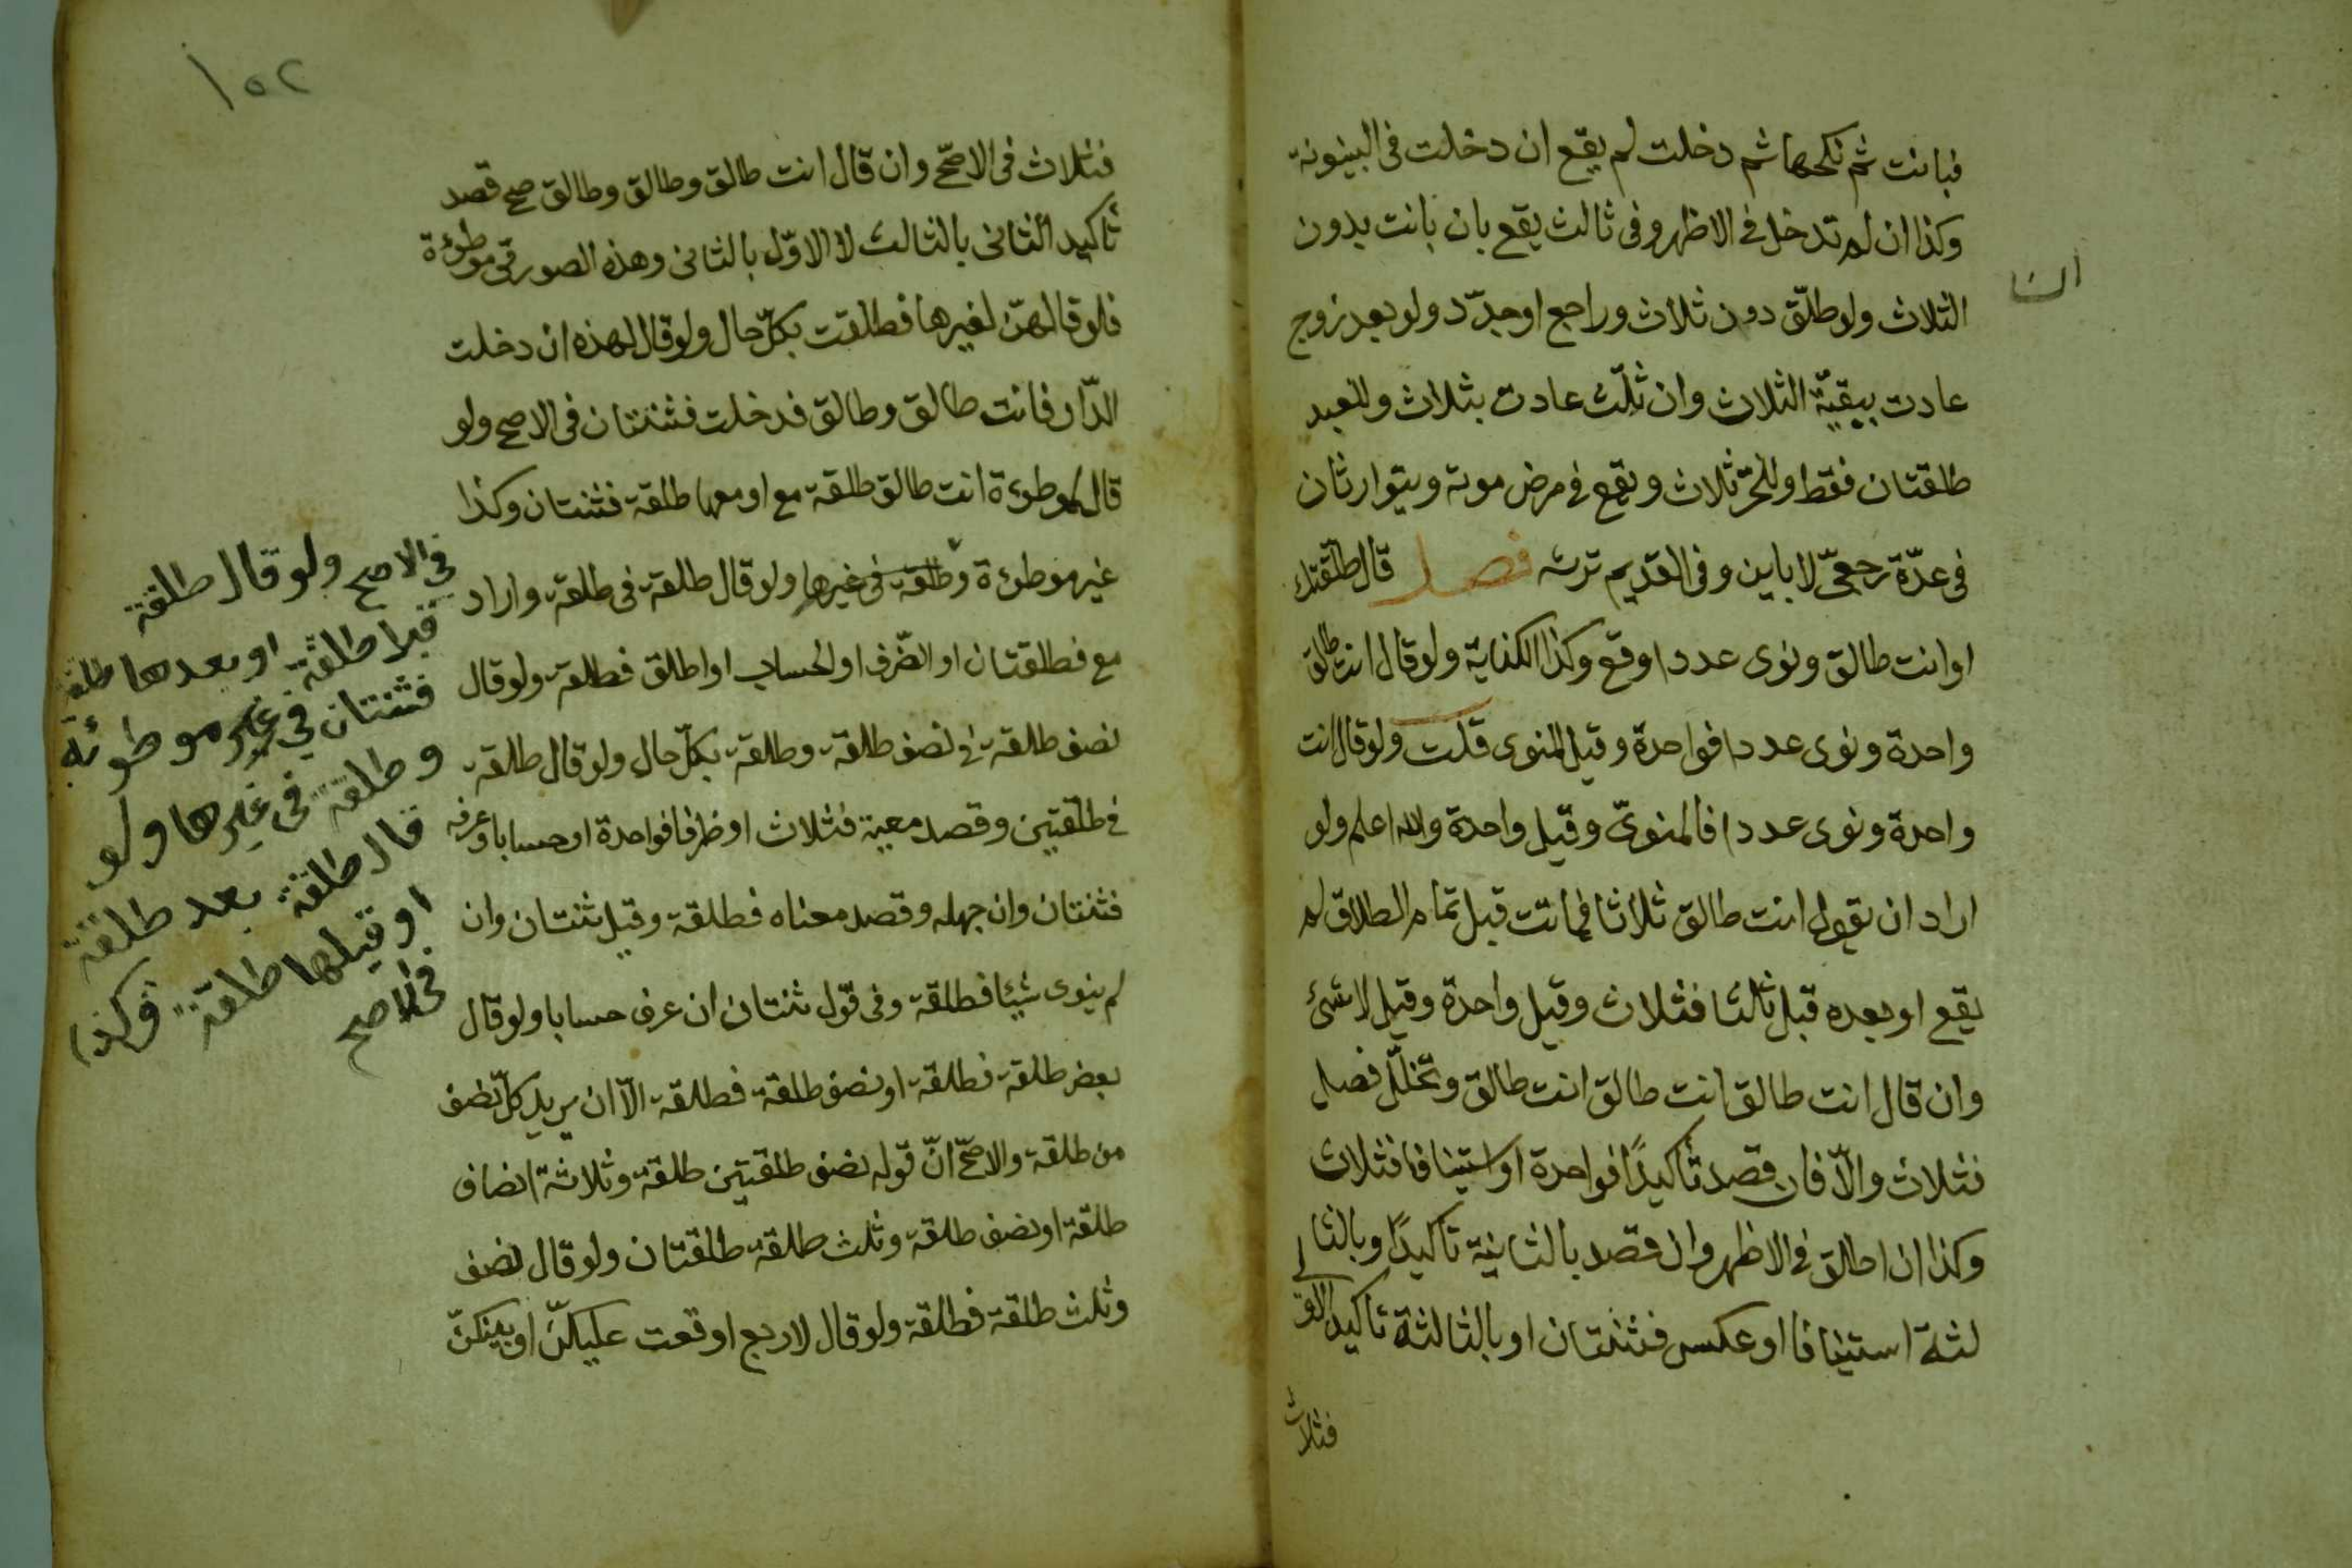 فبانت ثم نكحها ثم دخلت لم يقع ان دخلت فى البينونة
وكذا ان لم تدخل فى الاظهر وفى ثالث يقع بان بانت بدون
الثلاث ولو طلّق دون ثلاث وراجع او جدّد ولو بعد زوج
عادت ببقيّة الثلاث وان ثلّث عادت بثلاث وللعبد
طلقتان فقط وللحرّ ثلاث ويقع فى مرض موته ويتوارثان
فى عدّة رجعىّ لا باين وفى القديم ترثه فصل قال طلقتك
او انت طالق ونوى عددا وقع وكذا الكناية ولو قال انت طالق
واحدة ونوى عددا فواحدة وقيل المنوى قلت ولو قال انت
واحدة ونوى عددا فالمنوىّ وقيل واحدة والله اعلم ولو
اراد ان يقول انت طالق ثلاثا فماتت قبل تمام الطلاق لم
يقع او بعده قبل ثالثا فثلاث وقيل واحدة وقيل لا شئ
وان قال انت طالق انت طالق انت طالق وتخلّل فصل
فثلاث والّا فان قصد تأكيدًا فواحدة او استينافا فثلاث
وكذا ان اطلق فى الاظهر وان قصد بالثانية تأكيدًا وبالثا
لثة استينافا او عكس فثنتان او بالثالثة تاكيد الاولى
فثلاث
١٥٢
فثلاث فى الاصحّ وان قال انت طالق وطالق وطالق صح قصد
تأكيد الثانى بالثالث لا الاوّل بالثانى وهذه الصور فى موطوءة
فلو قالهنّ لغيرها فطلقت بكلّ حال ولو قال لهذه ان دخلت
الدّار فانت طالق وطالق فدخلت فثنتان فى الاصح ولو
قال لموطوءة انت طالق طلقة مع او معها طلقة فثنتان وكذا
غير موطوءة وطلقة فى غيرها ولو قال طلقة فى طلقة واراد
مع فطلقتان او الظّرف او الحساب او اطلق فطلقة ولو قال
نصف طلقة فى نصف طلقة وطلقة بكلّ حال ولو قال طلقة
فى طلقتين وقصد معية فثلاث او ظرفا فواحدة او حسابا وعرفه
فثنتان وان جهله وقصد معناه فطلقة وقيل ثنتان وان
لم ينوى شيئا فطلقة وفى قول ثنتان ان عرف حسابا ولو قال
بعض طلقة فطلقة او نصف طلقة فطلقة الّا ان يريد كلّ نصف
من طلقة والاصحّ انّ قوله نصف طلقتين طلقة وثلاثة انصاف
طلقة او نصف طلقة وثلث طلقة طلقتان ولو قال نصف
وثلث طلقة فطلقة ولو قال لاربع اوقعت عليكنّ او بينكنّ
فى الاصح ولو قال طلقة
قبلا طلقة او بعدها طلقة
فثنتان فى غير موطوئة
وطلقة فى غيرها ولو
قال طلقة بعد طلقة
او قبلها طلقة وكذا
فى الاصح